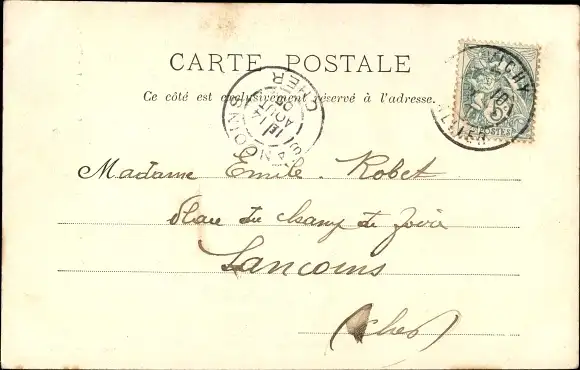 CARTE POSTALE
Ce côté est exclusivement réservé à l'adresse.
VICHY
ALLIER
POSTES
CHER
AOUT
Madame Emile Robet
Place du champ de foire
Sancoins
(Cher)